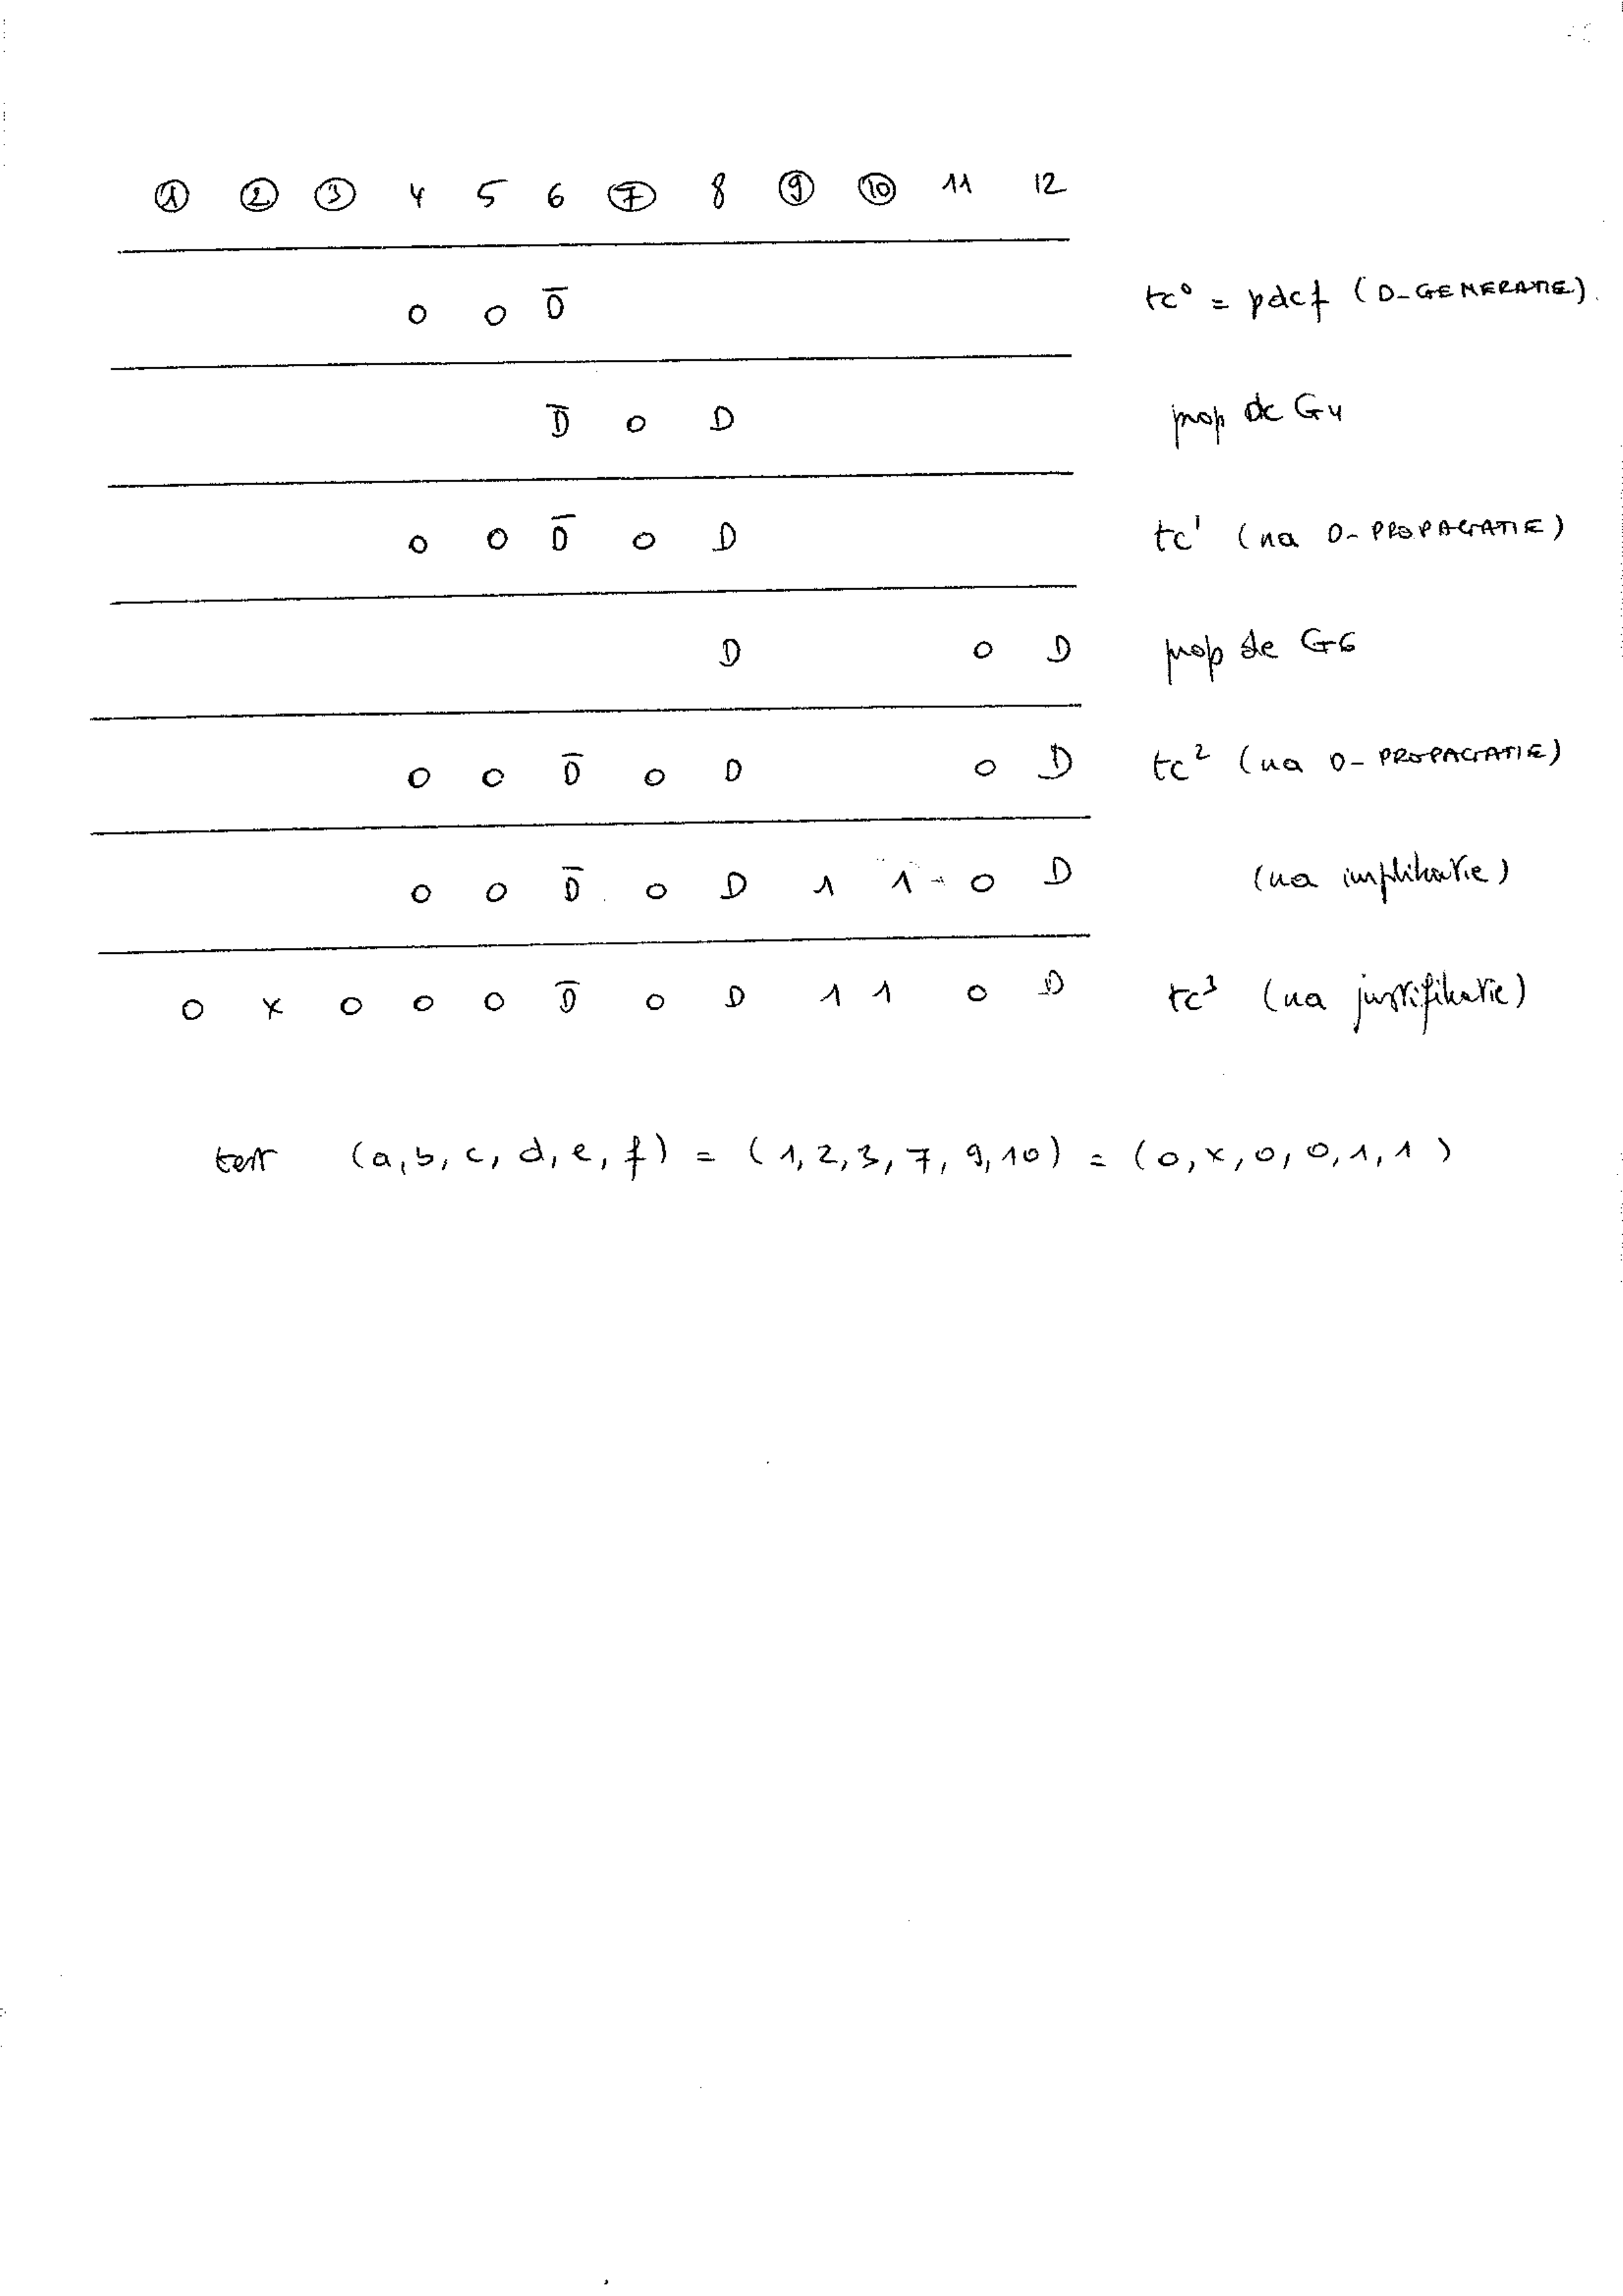 ① ② ③ 4 5 6 ⑦ 8 ⑨ ⑩ 11 12
0 0 D̅ tc⁰ = pdcf (D-GENERATIE).
D̅ 0 D prop dc G4
0 0 D̅ 0 D tc¹ (na D-PROPAGATIE)
D 0 D prop dc G6
0 0 D̅ 0 D 0 D tc² (na D-PROPAGATIE)
0 0 D̅ 0 D 1 1 0 D (na implikatie)
0 x 0 0 0 D̅ 0 D 1 1 0 D tc³ (na justifikatie)
test (a, b, c, d, e, f) = (1, 2, 3, 7, 9, 10) = (0, x, 0, 0, 1, 1)